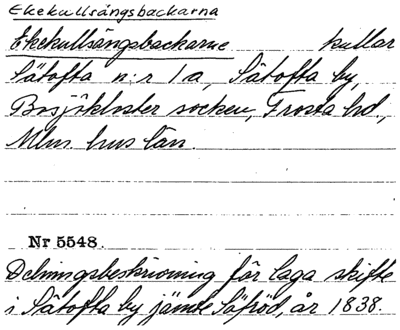 Ekekullsängsbackarna
Ekekullsängsbackarne kullar
Sätofta n:r 1a, Sätofta by,
Bosjökloster socken, Frosta hd.,
Mlm. hus län.
Nr 5548.
Delningsbeskrivning för laga skifte
i Sätofta by jämte Säfröd, år 1838.